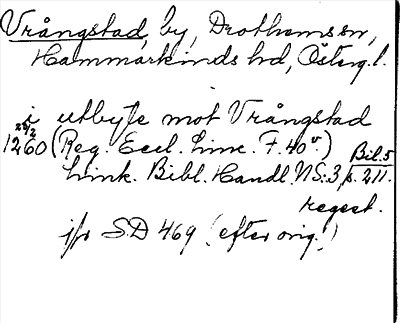 Vrångstad, by, Drothems sn,
Hammarkinds hd, Österg. l.
i utbyte mot Vrångstad
22/2 1260 (Reg. Eccl. Linc. F. 40v) Bil. 5
Link. Bibl. Handl. NS: 3 p. 211.
regest.
jfr S.D 469 (efter orig.)